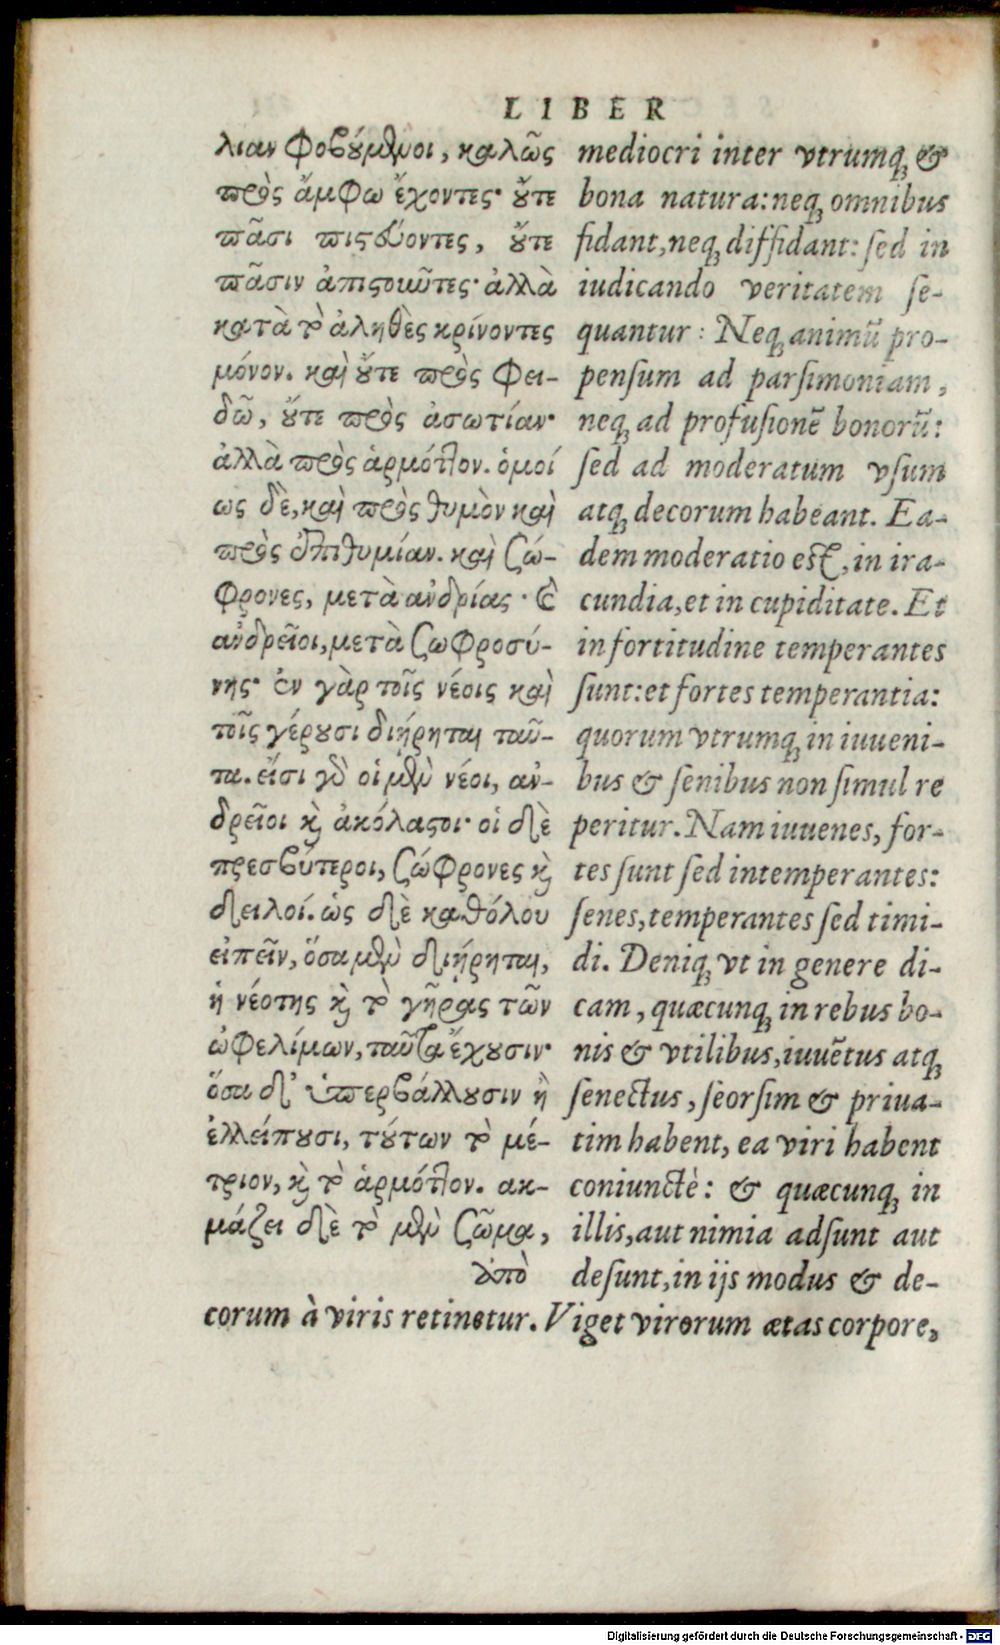 LIBER
λιαν φοβούμενοι, καλῶς
πρὸς ἄμφω ἔχοντες· οὔτε
πᾶσι πιστεύοντες, οὔτε
πᾶσιν ἀπιστοιῶτες· ἀλλὰ
κατὰ τὸ ἀληθὲς κρίνοντες
μόνον. καὶ οὔτε πρὸς φει-
δῶ, οὔτε πρὸς ἀσωτίαν·
ἀλλὰ πρὸς ἁρμόττον. ὁμοί
ως δὲ, καὶ πρὸς θυμὸν καὶ
πρὸς ἐπιθυμίαν. καὶ ζώ-
φρονες, μετὰ ἀνδρίας· καὶ
ἀνδρεῖοι, μετὰ ζωφροσύ-
νης· ἐν γὰρ τοῖς νέοις καὶ
τοῖς γέρουσι διῄρηται ταῦ-
τα. εἴσι γὰρ οἱ μὲν νέοι, ἀν-
δρεῖοι καὶ ἀκόλαστοι· οἱ δὲ
πρεσβύτεροι, ζώφρονες καὶ
δειλοί. ὡς δὲ καθόλου
εἰπεῖν, ὅσα μὲν διῄρηται,
ἡ νέοτης καὶ τὸ γῆρας τῶν
ὠφελίμων, ταῦτα ἔχουσιν·
ὅσα δ' ὑπερβάλλουσιν ἢ
ἐλλείπουσι, τούτων τὸ μέ-
τριον, καὶ τὸ ἁρμόττον. ακ-
μάζει δὲ τὸ μὲν ζῶμα,
ἀπὸ
mediocri inter vtrumq; &
bona natura: neq; omnibus
fidant, neq; diffidant: sed in
iudicando veritatem se-
quantur: Neq; animū pro-
pensum ad parsimoniam,
neq; ad profusionē bonorū:
sed ad moderatum vsum
atq; decorum habeant. Ea-
dem moderatio est, in ira-
cundia, et in cupiditate. Et
in fortitudine temperantes
sunt: et fortes temperantia:
quorum vtrumq; in iuueni-
bus & senibus non simul re
peritur. Nam iuuenes, for-
tes sunt sed intemperantes:
senes, temperantes sed timi-
di. Deniq; vt in genere di-
cam, quæcunq; in rebus bo-
nis & vtilibus, iuuētus atq;
senectus, seorsim & priua-
tim habent, ea viri habent
coniunctè: & quæcunq; in
illis, aut nimia adsunt aut
desunt, in ijs modus & de-
corum à viris retinetur. Viget virorum ætas corpore,
Digitalisierung gefördert durch die Deutsche Forschungsgemeinschaft - DFG